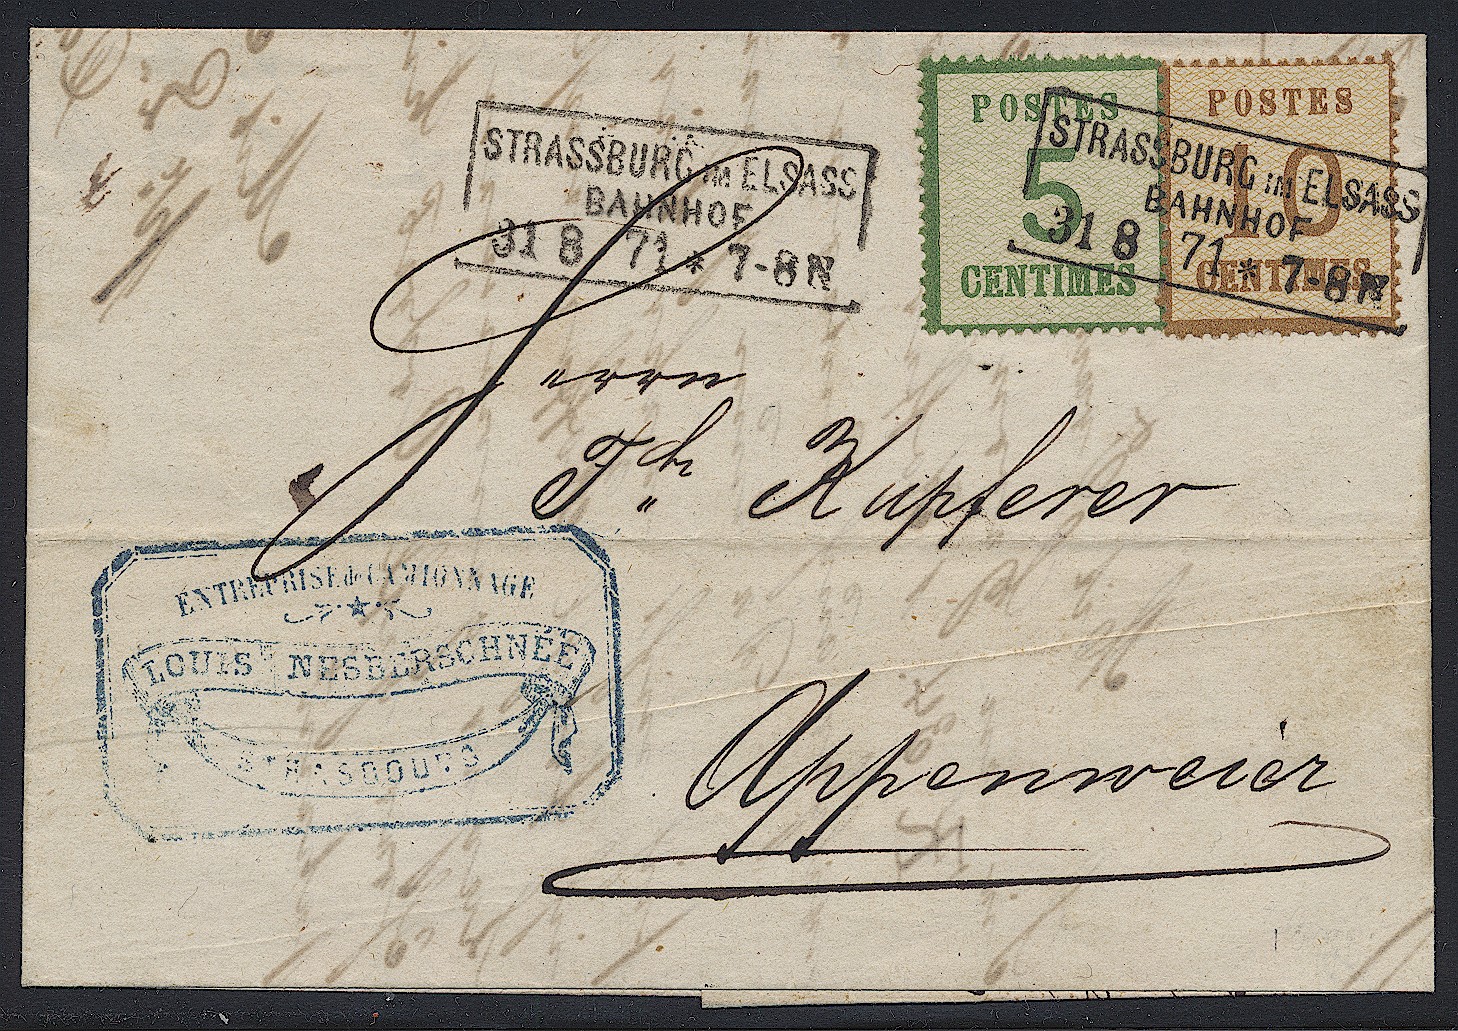 POSTES
5
CENTIMES
POSTES
10
CENTIMES
STRASSBURG IM ELSASS
BAHNHOF
31 8 71 * 7-8 N
STRASSBURG IM ELSASS
BAHNHOF
31 8 71 * 7-8 N
Herrn
Fch Kupferer
Appenweier
ENTREPRISE de CAMIONNAGE
LOUIS NESBERSCHNÉE
STRASBOURG